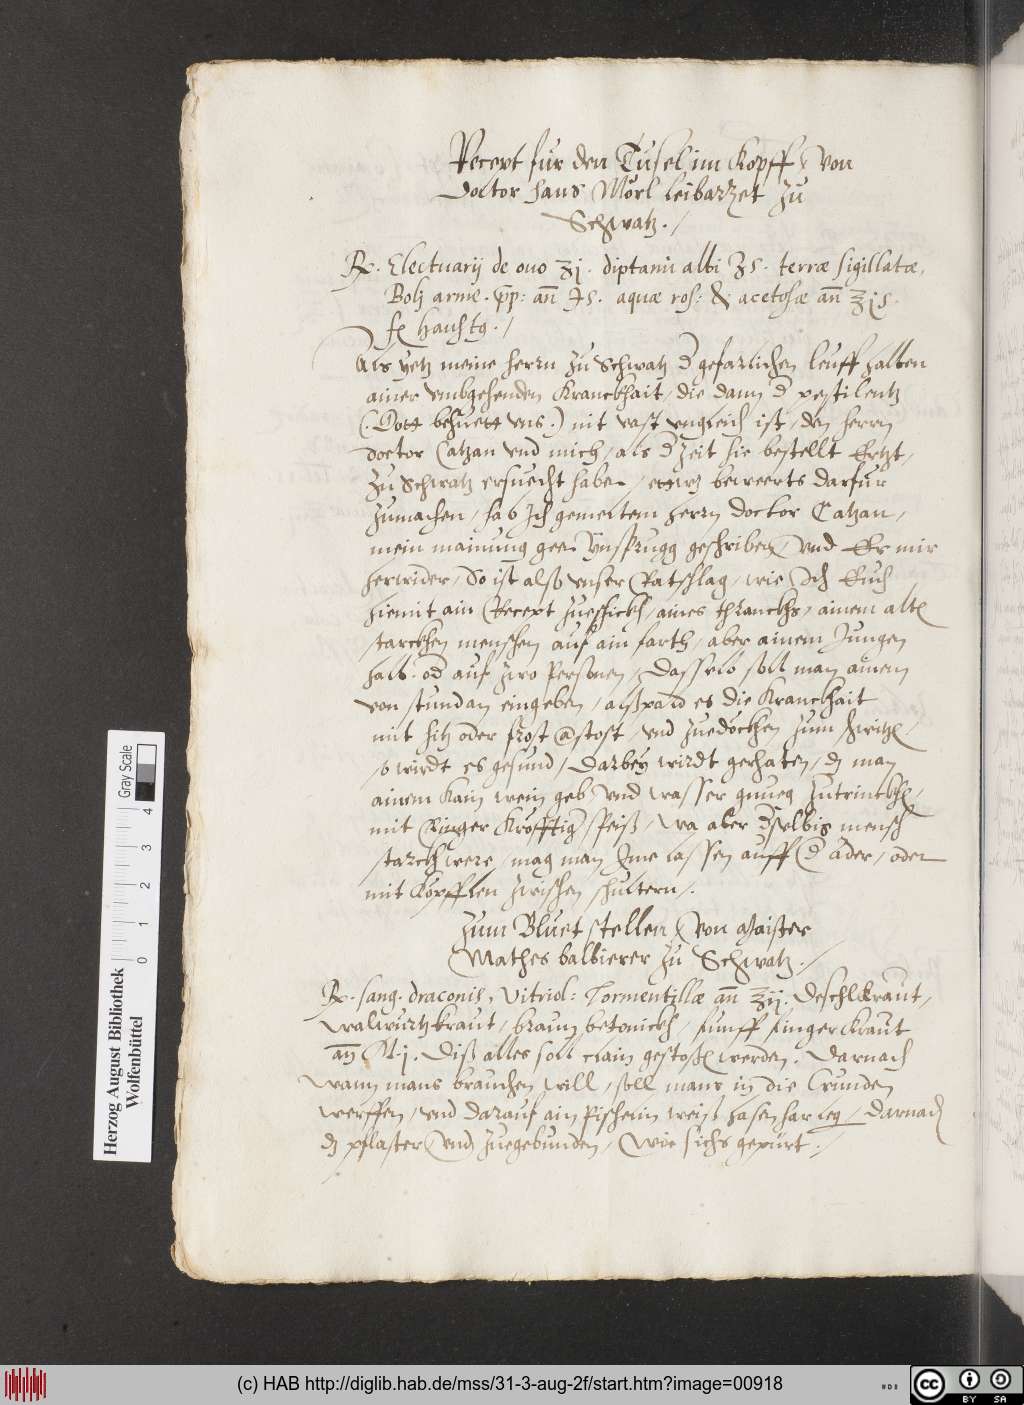 Recept fur den Tusel im Kopff, Von
Doctor Hans Mörl leibarzet zu
Schwatz. /
Rp. Electuarij de ouo ʒj. diptami albi ʒs. terræ sigillatæ,
Bolj arme. pp: an̄ ℈s. aquæ ros: & acetosæ an̄ ℥js.
f. haustg. /
Als yetz meine herrn zu Schwatz d gefarlichen leuff halben
ainer vmbgehenden Kranckhait, die dann d pestilentz
(. Gott behuett vns.) nit vast vngleich ist, den herrn
doctor Catzan vnd mich, als d Zeit hie bestellt Ertzt,
zu Schwatz ersuecht haben, etwz beweerts darfur
zumachen, hab Ich gemeltem herrn doctor Catzan,
mein mainung gen Ynsprugg geschriben, vnd Er mir
herwider, So ist also vnser Ratschlag, wie Ich Euch
hiemit ain Recept zueschickh, aines thranckhs, ainem alten
starckhen menschen auf ain farth, aber ainem Jungen
halb. od auf zwo Personen, Dasselb soll man ainem
von stundan eingeben, alspald es die Kranckhait
mit hitz oder frost anstost, vnd zuedöckhen zum schwitzen,
so wirdt es gesund, Darbey wirdt gerhaten, dz man
ainem kain wein geb, vnd wasser gnueg zutrinckhen,
mit Ringer Kröfftiger speiß, wa aber dselbig mensch
starckh were, mag man Ime lassen auff d ader, oder
mit Köpfflen zwischen schultern.
Zum Bluet stellen, Von Maister
Mathes balbierer zu Schwatz. /
Rp. sang. draconis, Vitriol: Tormentillæ an̄ ʒij. Deschlkraut,
walwurtzkraut, braun betonickh, funff finger kraut
an̄ M.j. Diß alles soll clain gestoßen werden. Darnach
wann mans brauchen will, soll mans in die Wunden
werffen, vnd darauf ain weiß hasen har leg, Darnach
dz pflaster vnd zuegebunden, Wie sichs gepürt. /
Herzog August Bibliothek
Wolfenbüttel
Gray Scale
0 1 2 3 4
(c) HAB http://diglib.hab.de/mss/31-3-aug-2f/start.htm?image=00918
cc BY SA